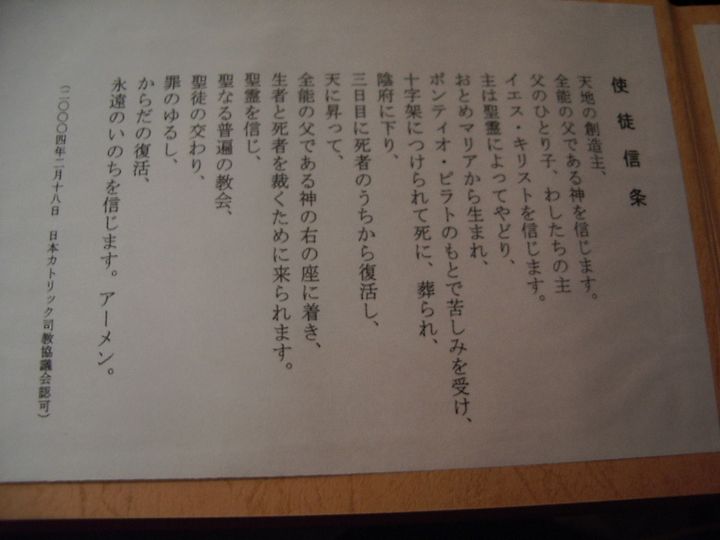 使徒信条
天地の創造主、
全能の父である神を信じます。
父のひとり子、わたしたちの主
イエス・キリストを信じます。
主は聖霊によってやどり、
おとめマリアから生まれ、
ポンティオ・ピラトのもとで苦しみを受け、
十字架につけられて死に、葬られ、
陰府に下り、
三日目に死者のうちから復活し、
天に昇って、
全能の父である神の右の座に着き、
生者と死者を裁くために来られます。
聖霊を信じ、
聖なる普遍の教会、
聖徒の交わり、
罪のゆるし、
からだの復活、
永遠のいのちを信じます。アーメン。
(二〇〇〇四年二月十八日 日本カトリック司教協議会認可)